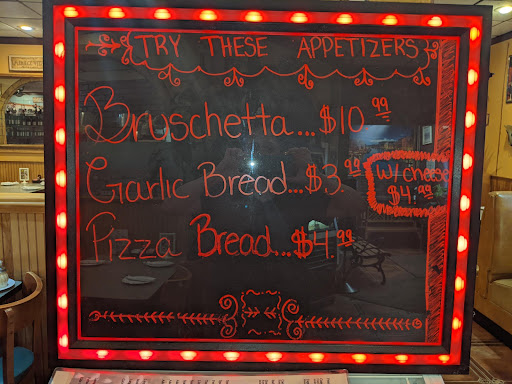 TRY THESE APPETIZERS
Bruschetta...$10.99
Garlic Bread...$3.99
W/ cheese
$4.99
Pizza Bread...$4.99